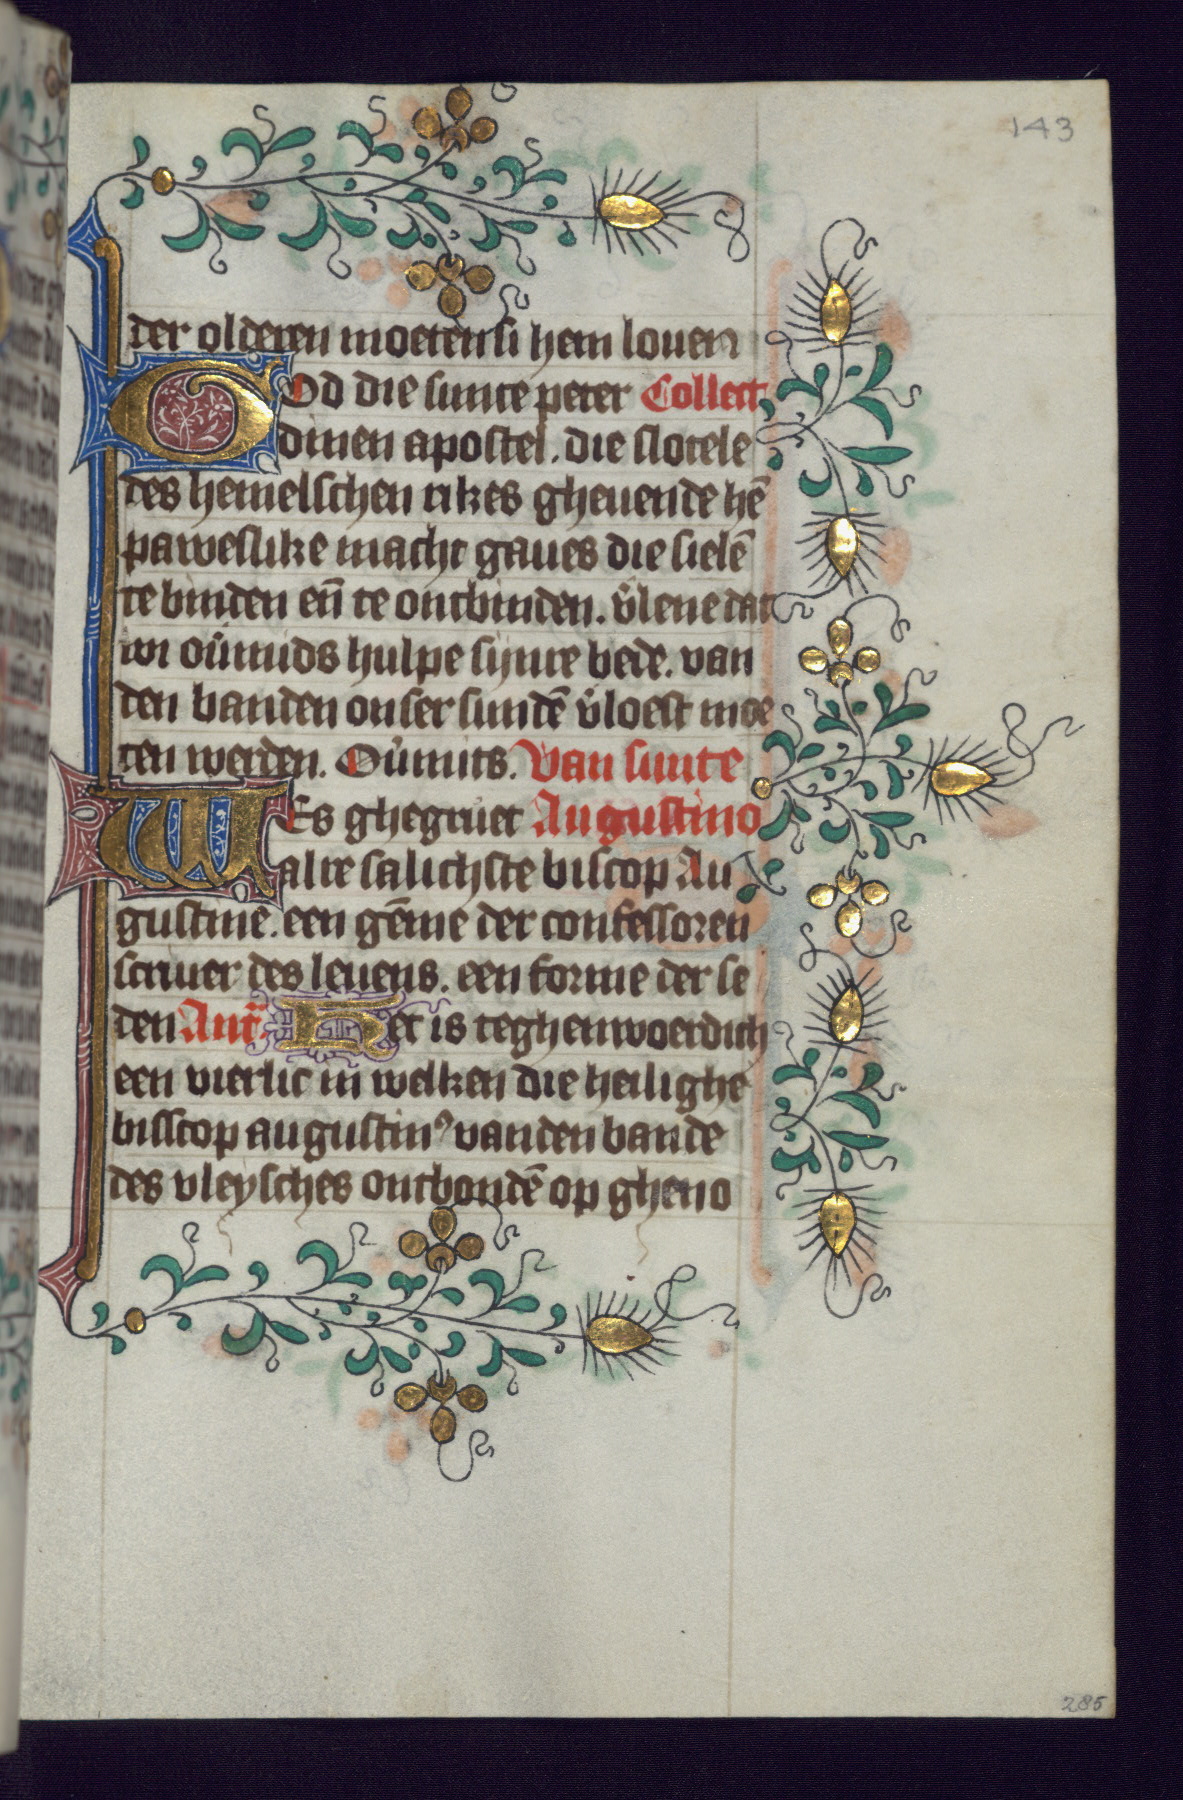 143
der olderen moeten si hem louen
God die sunte peter Collect
dinen apostel. die slotele
des hemelschen rikes gheuende hē
paweslike macht gaues die sielē
te binden eñ te ontbinden. v̉lene dat
wi oủmids hulpe sijnre bede. van
den banden onser sundē v̉loest moe
ten werden. Oủmits. Van sunte
Wes ghegruet Augustino
alre salichste biscop Au
gustine. een gēme der confessoren
scriuer des leuens. een forme der se
den Ant̄. Het is teghenwoerdich
een vierlic in welken die heilighe
bisscop augustin⁹ van den bande
des vleysches ontbondē op gheno
285